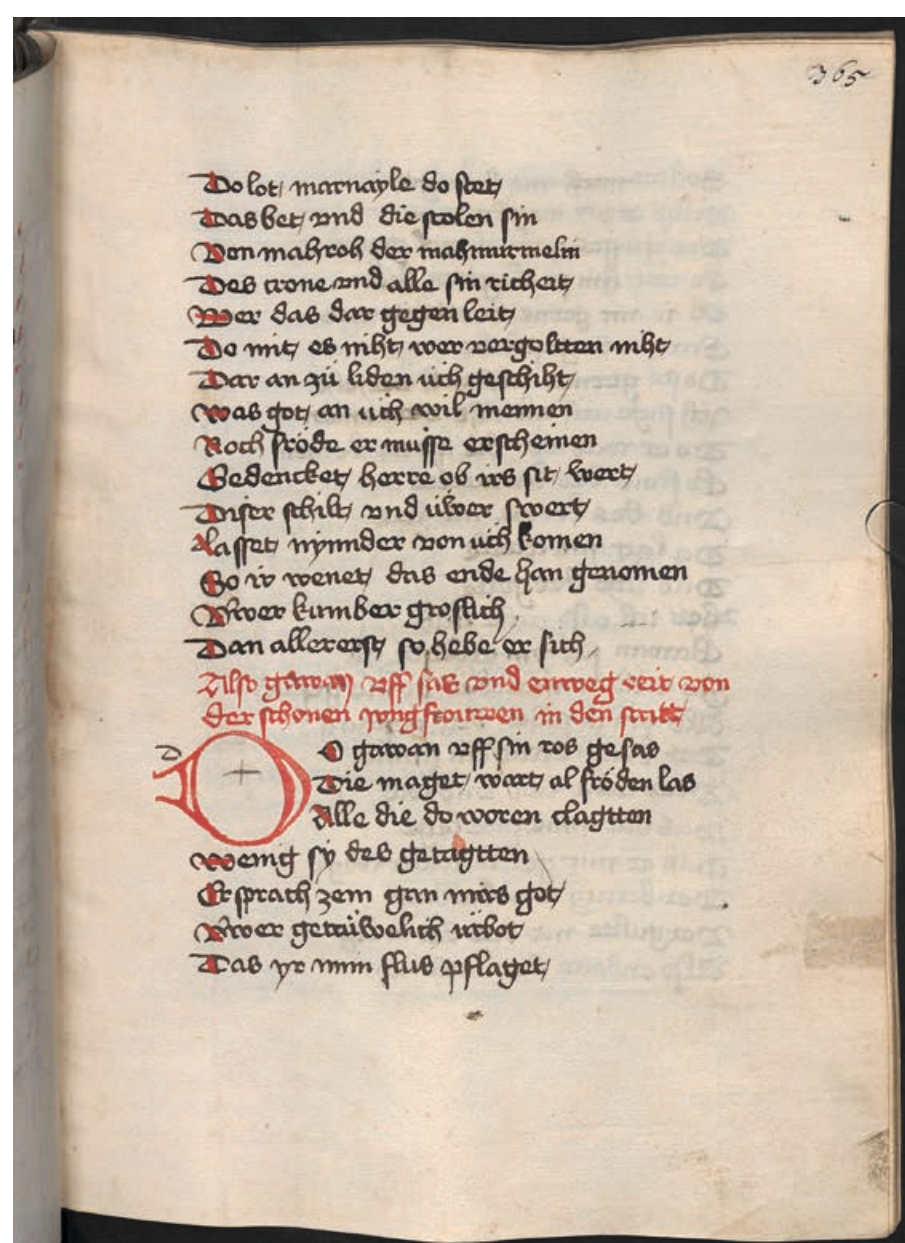 365
Do lot marnayle do stet
Das bet vnd die stolen sin
Von mahroh der mahmurmelin
Des crone vnd alle sin richeit
Wer das dar gegen leit
Do mit es niht wer vergoltten niht
Dar an zü liden üch geschiht
Was got an üch wil meinen
Noch fröde er müsse erscheinen
Gedencket herre ob irs sit wert
Diser schilt vnd üwer swert
Lasset nynnder von üch komen
So ir wenet das ende han genomen
Vwer kumber groslich
Dan allererst so hebe er sich
Also gawan vff sas vnd enweg reit von
der schonen yungfrouwen in den stritt
D
DO gawan vff sin ros gesas
Die maget wart al fröden las
Alle die do woren clagtten
Wenig sy des getagtten
Er sprach zem gan mirs got
Vwer getrüwelich ürbot
Das yr min sus pflaget